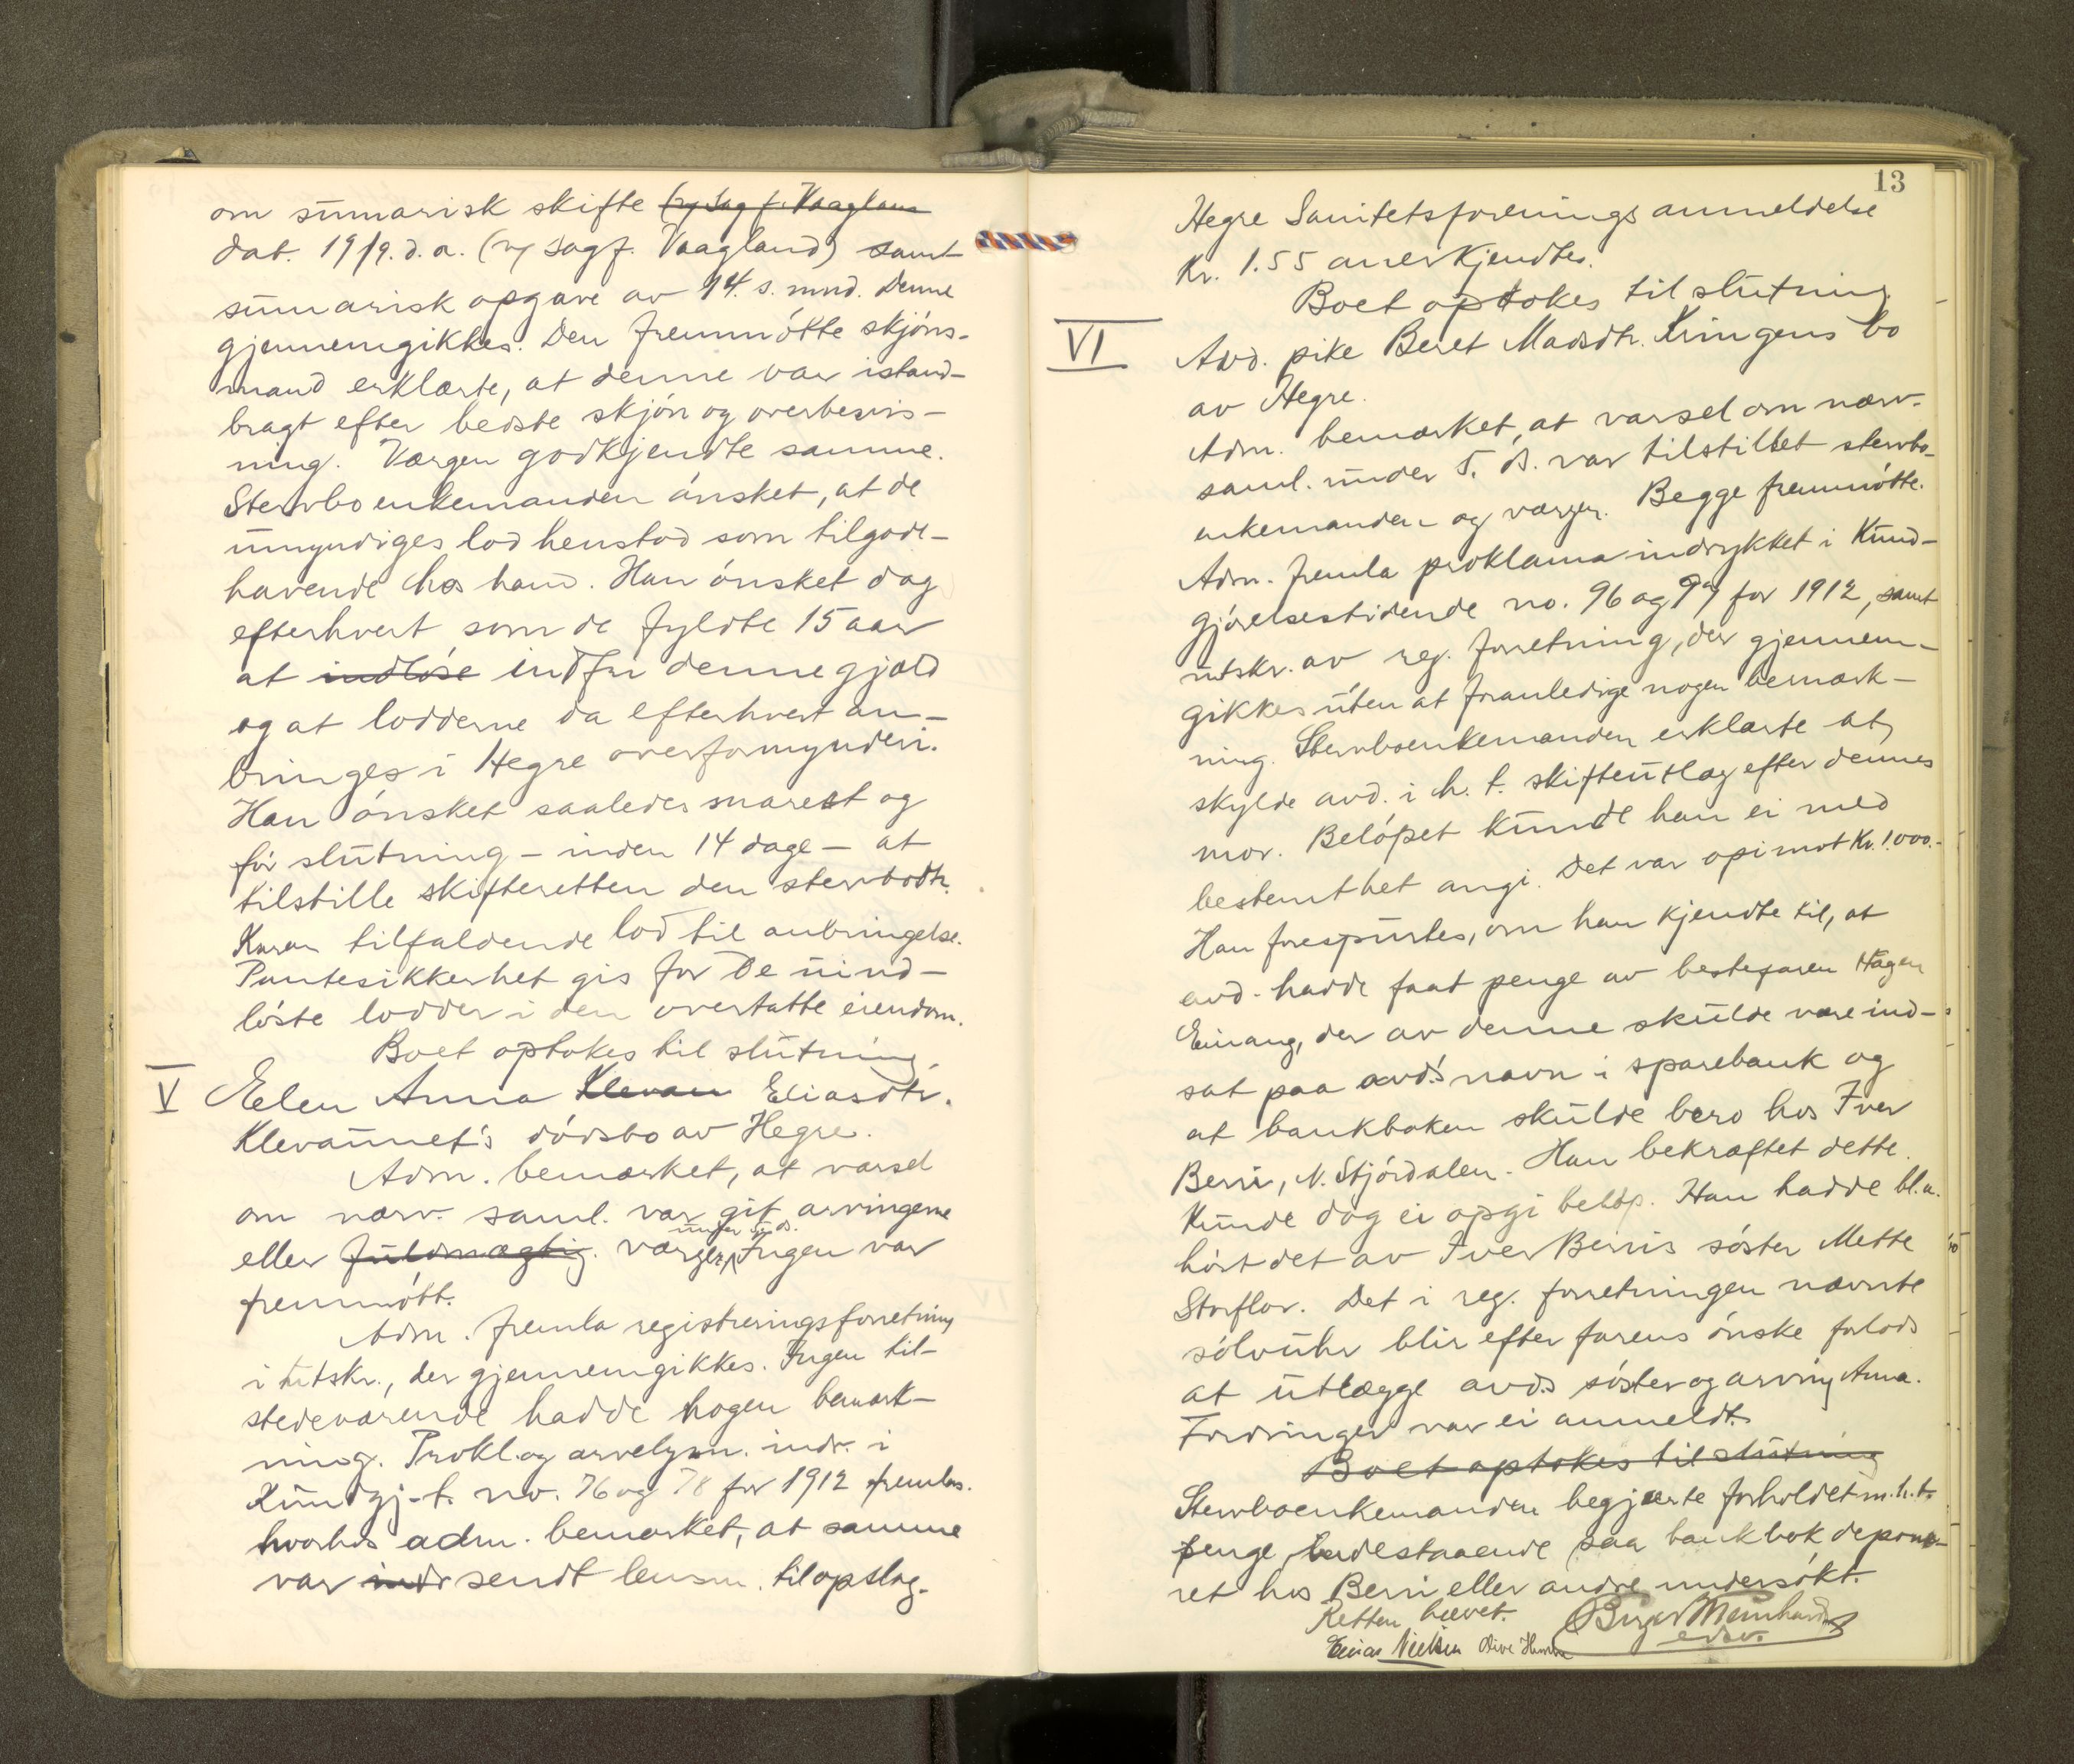 om sumarisk skifte (v/ Sagf. Vaagland
dat. 19/9. d.a. (v/ Sagf. Vaagland) samt
sumarisk opgave av 14. s. mnd. Denne
gjennemgikkes. Den fremmøtte skjøns-
mand erklærte, at denne var istand-
bragt efter bedste skjøn og overbevis-
ning. Værgen godkjendte samme.
Stervboenkemanden ønsket, at de
umyndiges lod henstod som tilgode-
havende hos ham. Han ønsket dog
efterhvert som de fyldte 15 aar
at indløse indfri denne gjæld
og at lodderne da efterhvert an-
bringes i Hegre overformynderi.
Han ønsket saaledes snarest og
før slutning - inden 14 dage - at
tilstille skifteretten den stervbodtr.
Karen tilfaldende lod til anbringelse.
Pantesikkerhet gis for de uind-
løste lodder i den overtatte eiendom.
Boet optokes til slutning.
V Elen Anna Klevan Eliasdtr.
Klevaunet's dødsbo av Hegre.
Adm. bemærket, at varsel
om nærv. saml. var git arvingerne
eller fuldmægtig. værger, Ingen var
fremmøtt.
Adm. fremla registreringsforretning
i utskr., der gjennemgikkes. Ingen til-
stedeværende hadde nogen bemærk-
ning. Prokl. og arvelysn. indr. i
Kundgj.-t. no. 76 og 78 for 1912 fremlas.
hvorhos adm. bemærket, at samme
var indr sendt lensm. til opslag.
13
Hegre Sanitetsforenings anmeldelse
Kr. 1.55 anerkjendtes.
Boet optokes til slutning.
VI Avd. pike Beret Madsdtr. Kringens bo
av Hegre.
Adm. bemærket, at varsel om nærv.
saml. under 5. ds. var tilstillet stervbo-
enkemanden og værgen. Begge fremmøtte.
Adm. fremla proklama indrykket i Kund-
gjørelsestidende no. 96 og for 1912, samt
utskr. av reg. forretning, der gjennem-
gikkes uten at foranledige nogen bemærk-
ning. Stervboenkemanden erklærte at
skylde avd. i h. t. skifteutlæg efter dennes
mor. Beløpet kunde han ei med
bestemthet angi. Det var opimot Kr. 1.000.-
Han forespurtes, om han kjendte til, at
avd. hadde faat penge av bestefaren Hagen
Einang, der av denne skulde være ind-
sat paa avd.s navn i sparebank og
at bankboken skulde bero hos Iver
Berri, N. Stjørdalen. Han bekræftet dette.
Kunde dog ei opgi beløp. Han hadde bl.a.
hørt det av Iver Berris søster Mette
Storflor. Det i reg. forretningen nævnte
sølvuhr blir efter farens ønske forlods
at utlægge avd.s søster og arving Anna.
Fordringer var ei anmeldt.
Boet optokes til slutning
Stervboenkemanden begjærte forholdet m.h.t.
penge indestaaende paa bankbok depone-
ret hos Berri eller andre undersøkt.
Retten hævet.
Einar Nielsen